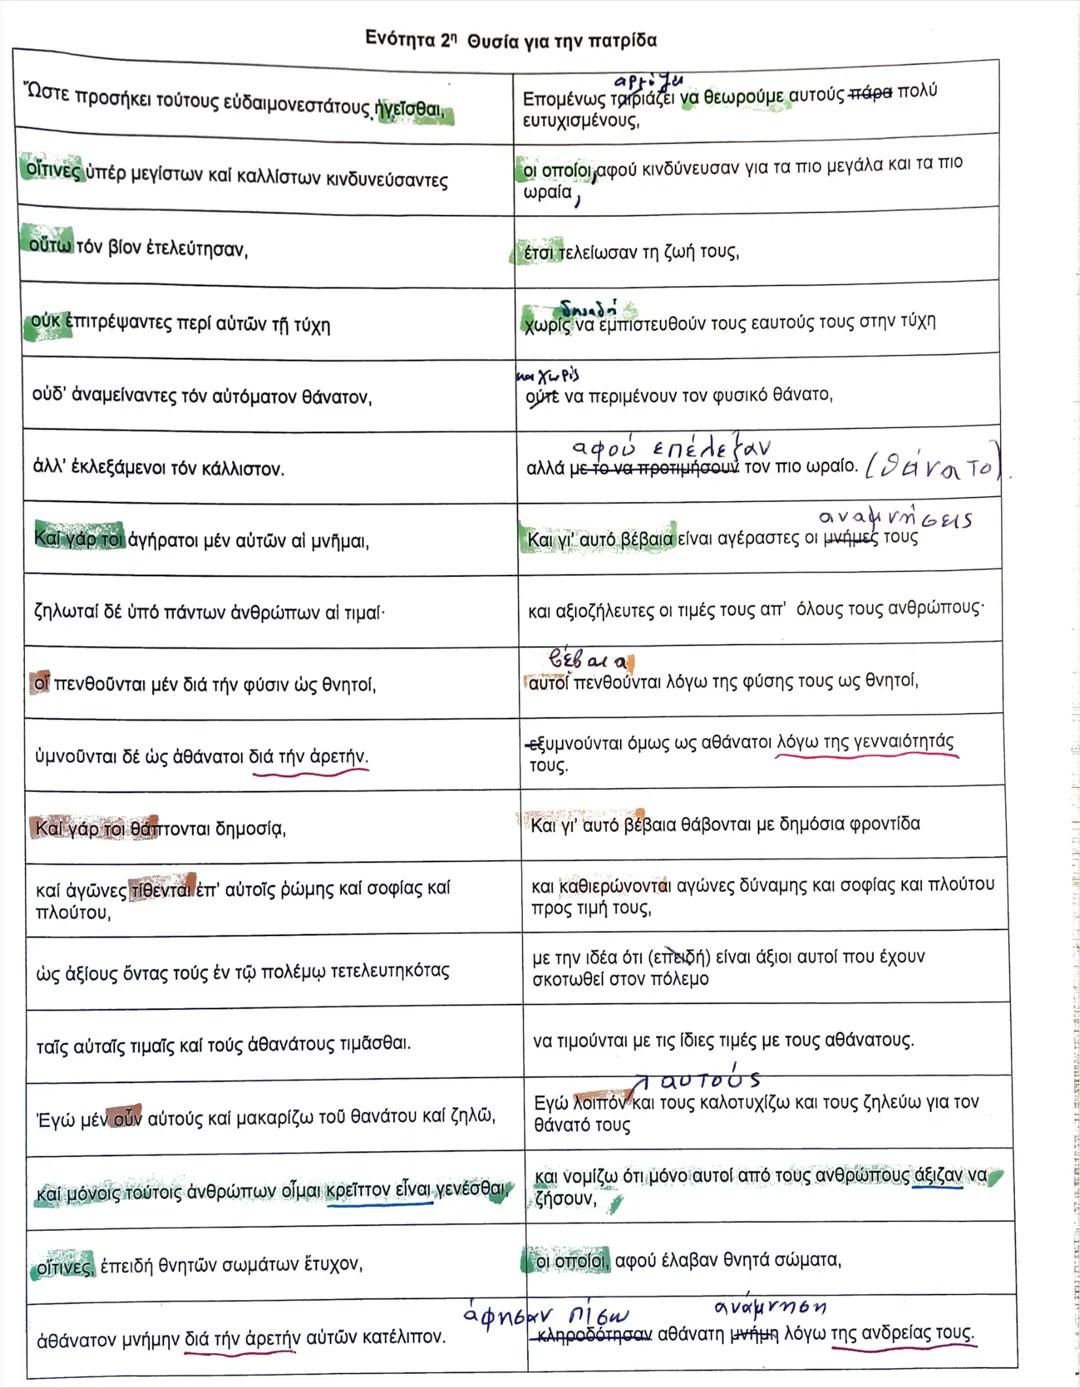 Ενότητα 2η Θυσία για την πατρίδα
Ὥστε προσήκει τούτους εὐδαιμονεστάτους ἡγεῖσθαι,
αρμόζει
Επομένως ταιριάζει να θεωρούμε αυτούς πάρα πολύ
ευτυχισμένους,
οἵτινες ὑπέρ μεγίστων καί καλλίστων κινδυνεύσαντες
οι οποίοι, αφού κινδύνευσαν για τα πιο μεγάλα και τα πιο
ωραία,
οὕτω τόν βίον ἐτελεύτησαν,
έτσι τελείωσαν τη ζωή τους,
οὐκ ἐπιτρέψαντες περί αὑτῶν τῇ τύχῃ
δηλαδή
χωρίς να εμπιστευθούν τους εαυτούς τους στην τύχη
οὐδ' ἀναμείναντες τόν αὐτόματον θάνατον,
και χωρίς
ούτε να περιμένουν τον φυσικό θάνατο,
ἀλλ' ἐκλεξάμενοι τόν κάλλιστον.
αφού επέλεξαν
αλλά με το να προτιμήσουν τον πιο ωραίο. (θάνατο).
Καί γάρ τοι ἀγήρατοι μέν αὐτῶν αἱ μνῆμαι,
αναμνήσεις
Και γι' αυτό βέβαια είναι αγέραστες οι μνήμες τους
ζηλωταί δέ ὑπό πάντων ἀνθρώπων αἱ τιμαί·
και αξιοζήλευτες οι τιμές τους απ' όλους τους ανθρώπους·
οἵ πενθοῦνται μέν διά τήν φύσιν ὡς θνητοί,
βέβαια
αυτοί πενθούνται λόγω της φύσης τους ως θνητοί,
ὑμνοῦνται δέ ὡς ἀθάνατοι διά τήν ἀρετήν.
εξυμνούνται όμως ως αθάνατοι λόγω της γενναιότητάς
τους.
Καί γάρ τοι θάπτονται δημοσίᾳ,
Και γι' αυτό βέβαια θάβονται με δημόσια φροντίδα
καί ἀγῶνες τίθενται ἐπ' αὐτοῖς ῥώμης καί σοφίας καί
πλούτου,
και καθιερώνονται αγώνες δύναμης και σοφίας και πλούτου
προς τιμή τους,
ὡς ἀξίους ὄντας τούς ἐν τῷ πολέμῳ τετελευτηκότας
με την ιδέα ότι (επειδή) είναι άξιοι αυτοί που έχουν
σκοτωθεί στον πόλεμο
ταῖς αὐταῖς τιμαῖς καί τούς ἀθανάτους τιμᾶσθαι.
να τιμούνται με τις ίδιες τιμές με τους αθάνατους.
αυτούς
Ἐγώ μέν οὖν αὐτούς καί μακαρίζω τοῦ θανάτου καί ζηλῶ,
Εγώ λοιπόν και τους καλοτυχίζω και τους ζηλεύω για τον
θάνατό τους
καί μόνοις τούτοις ἀνθρώπων οἶμαι κρεῖττον εἶναι γενέσθαι,
και νομίζω ότι μόνο αυτοί από τους ανθρώπους άξιζαν να
ζήσουν,
οἵτινες, ἐπειδή θνητῶν σωμάτων ἔτυχον,
οι οποίοι, αφού έλαβαν θνητά σώματα,
ἀθάνατον μνήμην διά τήν ἀρετήν αὑτῶν κατέλιπον.
άφησαν πίσω ανάμνηση
κληροδότησαν αθάνατη μνήμη λόγω της ανδρείας τους.